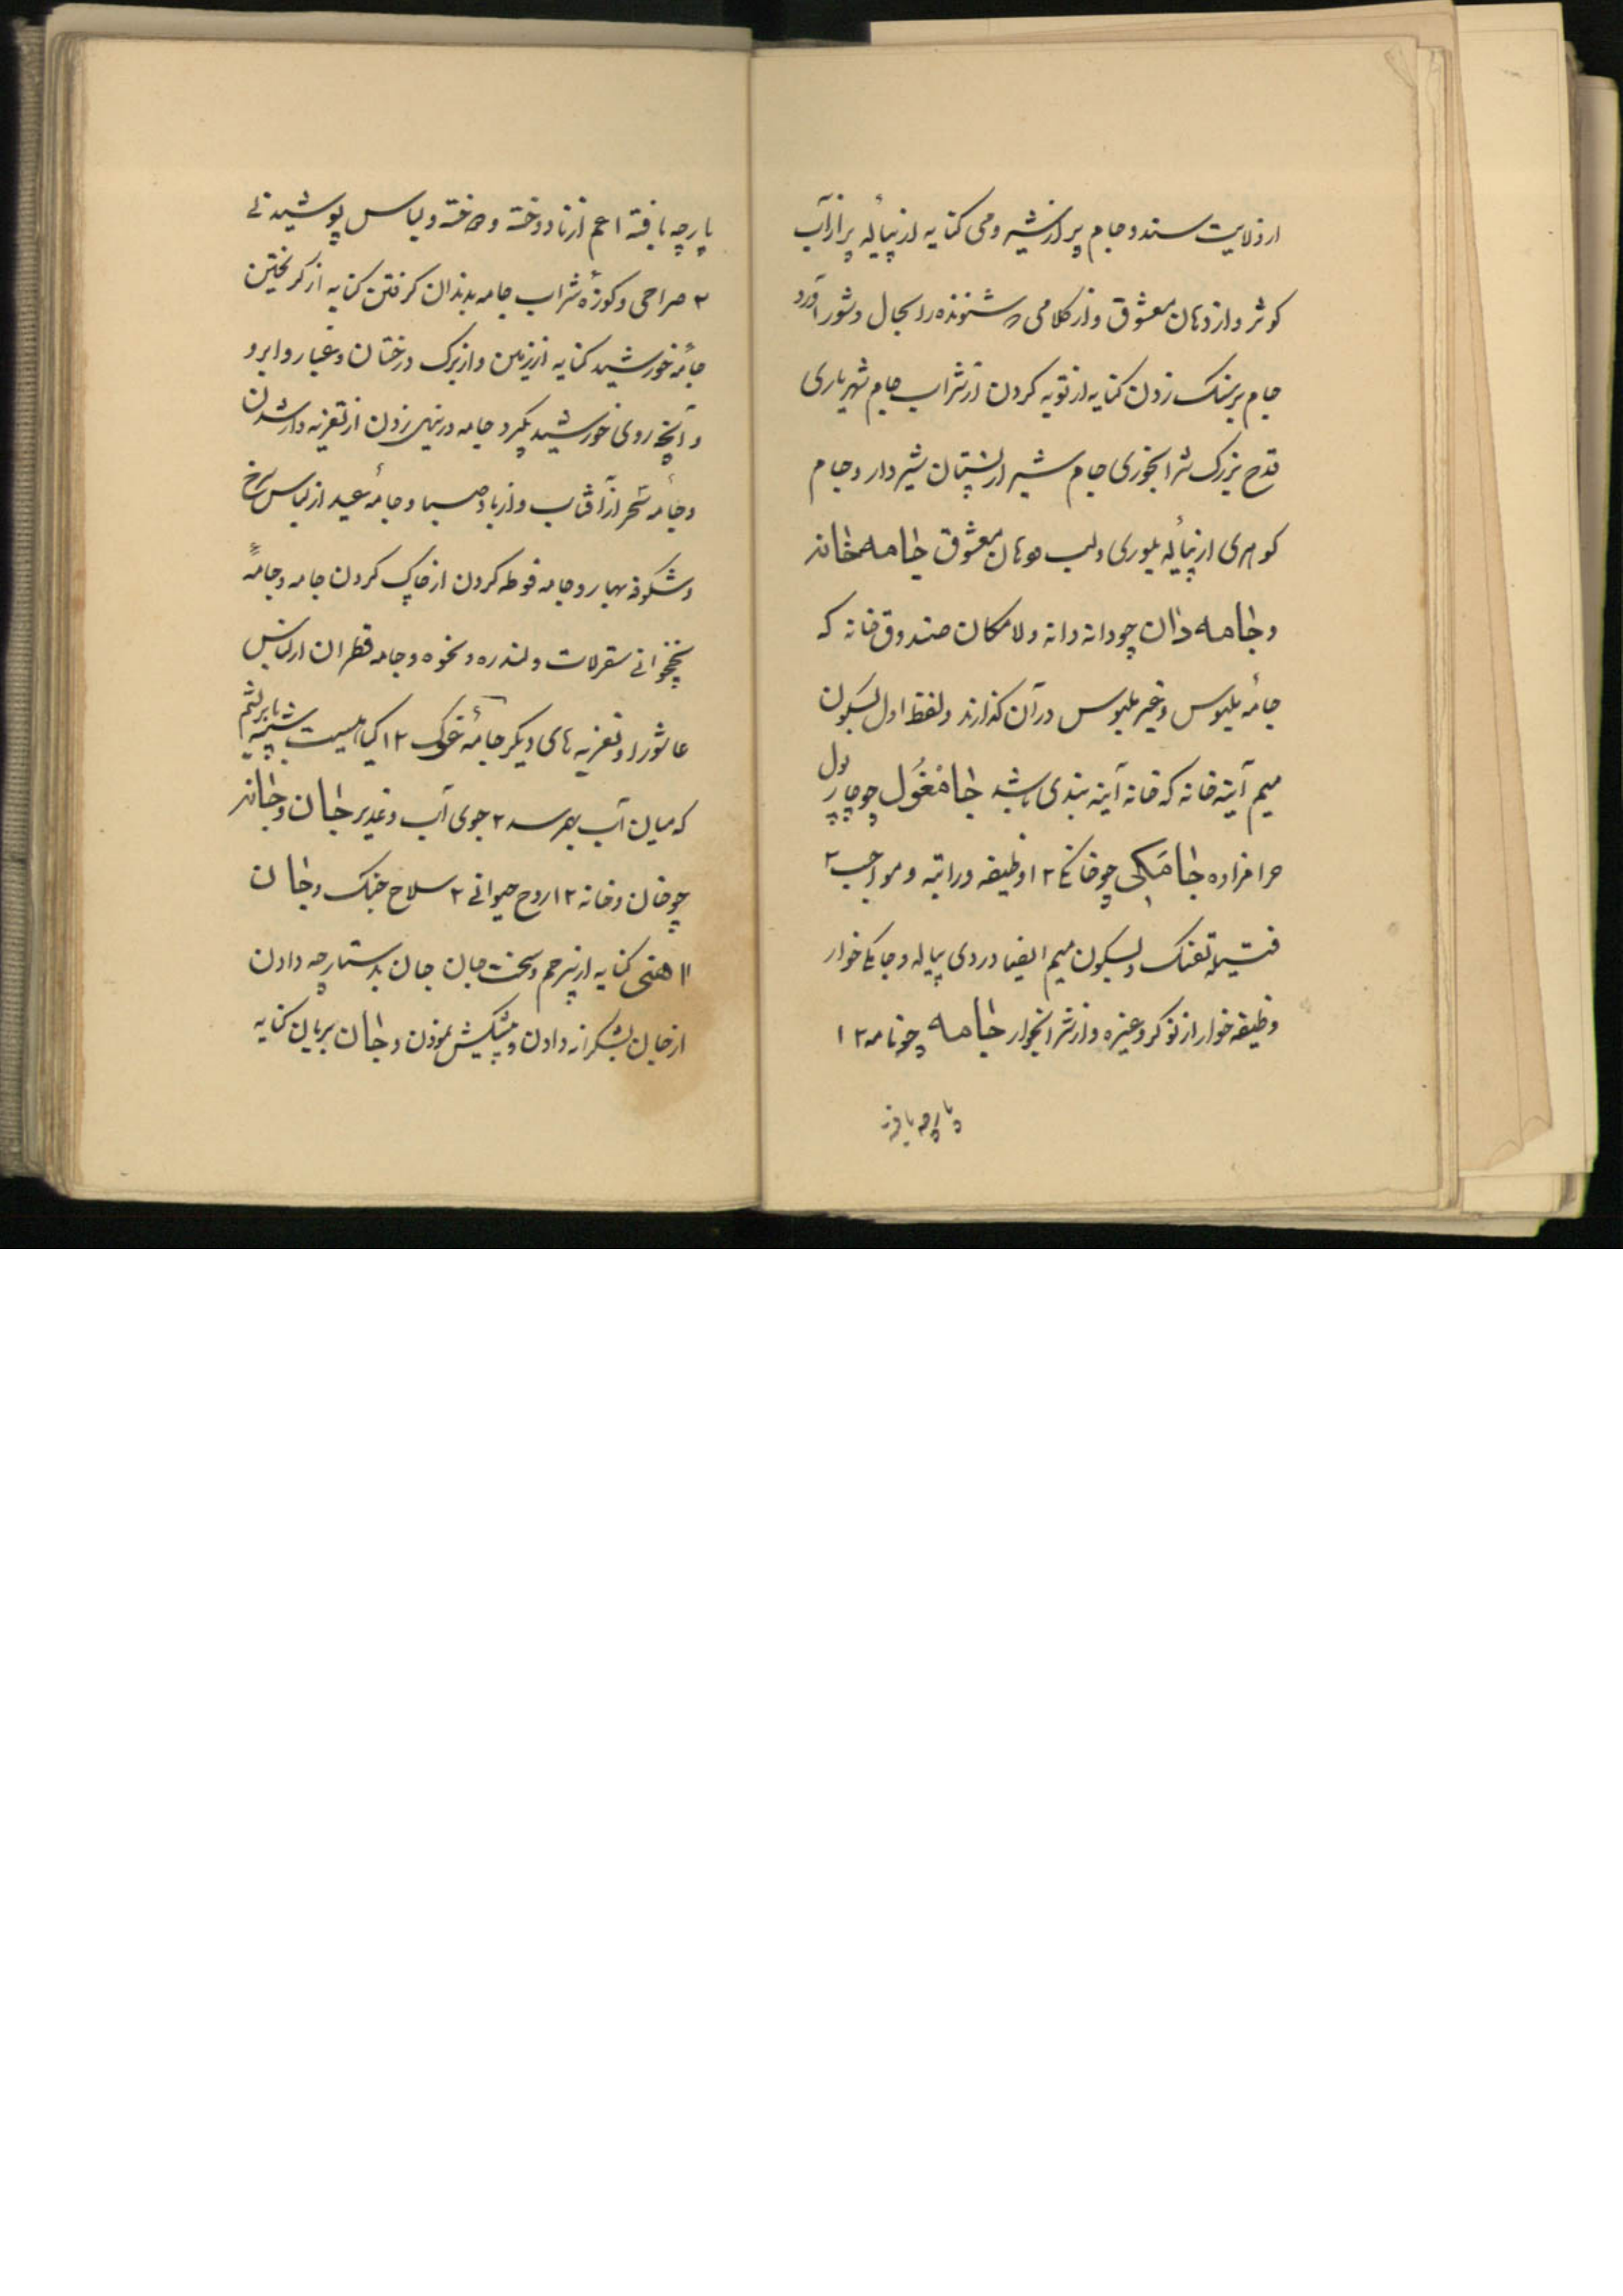 از ولایت سند و جام پر از شیر و می کنایه از پیالهٔ پر از آب
کوثر و از دهان معشوق و از کلامی که شنونده را بحال و شور آورد
جام بر سنک زدن کنایه از توبه کردن از شراب جام شهریاری
قدح بزرک شرابخوری جام شیر از پستان شیردار و جام
کوهری از پیالهٔ بلوری و لب و دهان معشوق جامه خانه
و جامه دان چو دانه دانه و لامکان صندوق خانه که
جامهٔ ملبوس و غیر ملبوس در آن کذارند و لفظ اول بسکون
میم آینه خانه که خانه آینه بندی باشد جامغول چو چارپول
حرامزاده جامکی چو خانکی ۲ ا وظیفه و راتبه و مواجب ۲
فتیلهٔ تفنک و بسکون میم ایضا دردی پیاله و جامکی خوار
وظیفه خوار از نوکر و غیره و از شرابخوار جامه چو نامه ۲ ا
پارچه بافته
پارچه بافته اعم از نادوخته و دوخته و لباس پوشیدنی
۲ صراحی و کوزهٔ شراب جامه بدندان کرفتن کنایه از کریختن
جامهٔ خورشید کنایه از زمین و از برک درختان و غبار و ابر و
و آنچه روی خورشید بکیرد جامه در نیل زدن از تعزیه دار شدن
و جامهٔ سحر از آفتاب و از باد صبا و جامهٔ عید از لباس سرخ
و شکوفه بهار و جامه فوطه کردن از چاک کردن جامه و جامهٔ
نخجوانی سقرلات و لندره و نحوه و جامه قطران از لباس
عاشورا و تعزیه های دیکر جامهٔ غوک ۲ ا کیاهیست شبیه بابریشم
که میان آب بهرسد ۲ جوی آب و غدیر جان و جانه
چو خان و خانه ۲ ا روح حیوانی ۲ سلاح جنک و جان
اهنی کنایه از بیرحم و سخت جان جان بدستارچه دادن
از جان بشکرانه دادن و پیشکش نمودن و جان بریان کنایه